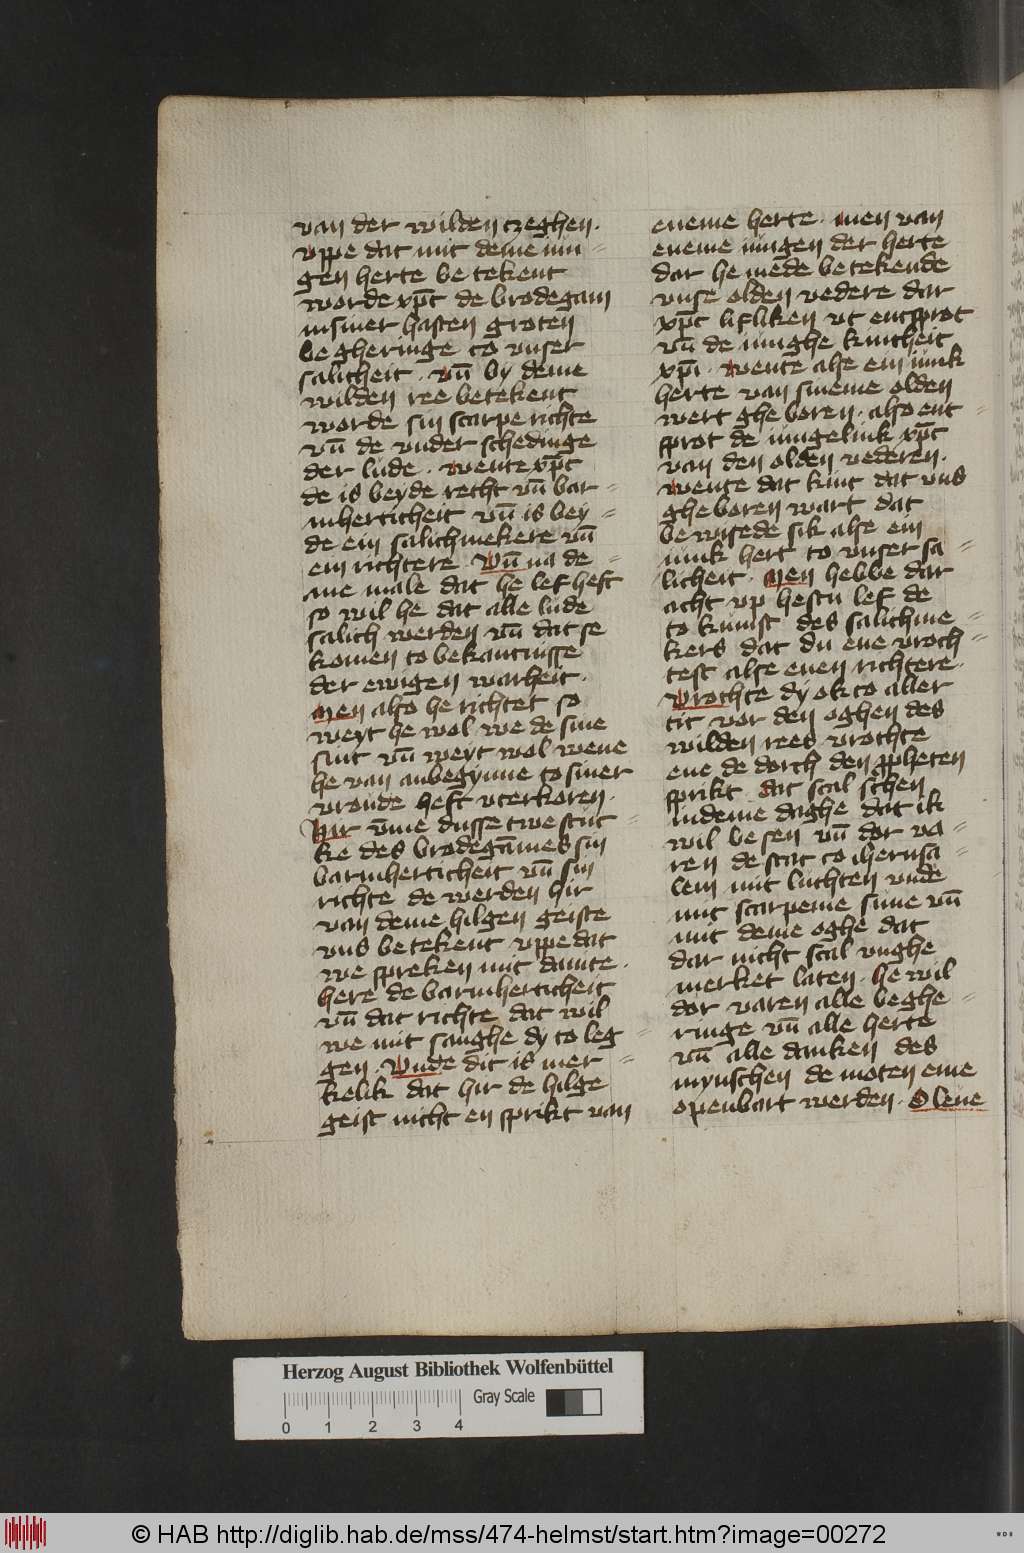 van der wilden czeghen.
vppe dat mit deme iun=
gen herte be tekent
worde xp̄c de brodegam
in siner hasten groten
be gheringe to vnser
salicheit. vn̄ by deme
wilden ree betekent
worde sin scarpe richte
vn̄ de vnder schedinge
der lude. wente xp̄c
de is beyde recht vn̄ bar=
mherticheit vn̄ is bey=
de ein salichmekere vn̄
ein richtere. Vn̄ na de=
me male dat he lef heft
so wil he dat alle lude
salich werden vn̄ dat se
komen to bekantnisse
der ewigen warheit.
Men also he richtet so
weyt he wol we de sine
sint vn̄ weyt wol wene
he van anbegynne to siner
vroude heft vterkoren.
Hir v̄me dusse twe stuc=
ke des brodegāmes sin
barmherticheit vn̄ sin
richte de werden hir
van deme hilgen geiste
vns betekent vppe dat
we spreken mit dauite.
here de barmherticheit
vn̄ dat richte dat wil
we mit sanghe dy to leg=
gen. Vnde dit is mer=
kelik dat hir de hilge
geist nicht en sprikt van
eneme herte. men van
eneme iungen der herte
dar he mede betekende
vnse olden vedere dar
xp̄c lifliken vt entsprot
vn̄ de iunghe kintheit
xp̄i. wente alse ein iunk
herte van sineme olden
wert ghe boren. also ent=
sprot de iungelink xp̄c
van den olden vederen.
wente dat kint dat vns
gheboren wart dat
bewisede sik alse ein
iunk hert to vnser sa=
licheit. Men hebbe dar
acht vp hestu lef de
to kumst des salichme=
kers dat du ene vroch=
test alse enen richtere.
Vrochte dy ok to aller
tit vor den oghen des
wilden rees vrochte
ene de dorch den ꝓpheten
sprikt dat scal schen
in deme daghe dat ik
wil be sen vn̄ dor va=
ren de stat to iherusa=
lem mit luchten vnde
mit scarpeme sinne vn̄
mit deme oghe dat
dar nicht scal vnghe
merket laten. he wil
dor varen alle beghe=
ringe vn̄ alle herte
vn̄ alle danken des
mynschen de moten eme
openbart werden. O leue
Herzog August Bibliothek Wolfenbüttel
Gray Scale
0 1 2 3 4
© HAB http://diglib.hab.de/mss/474-helmst/start.htm?image=00272